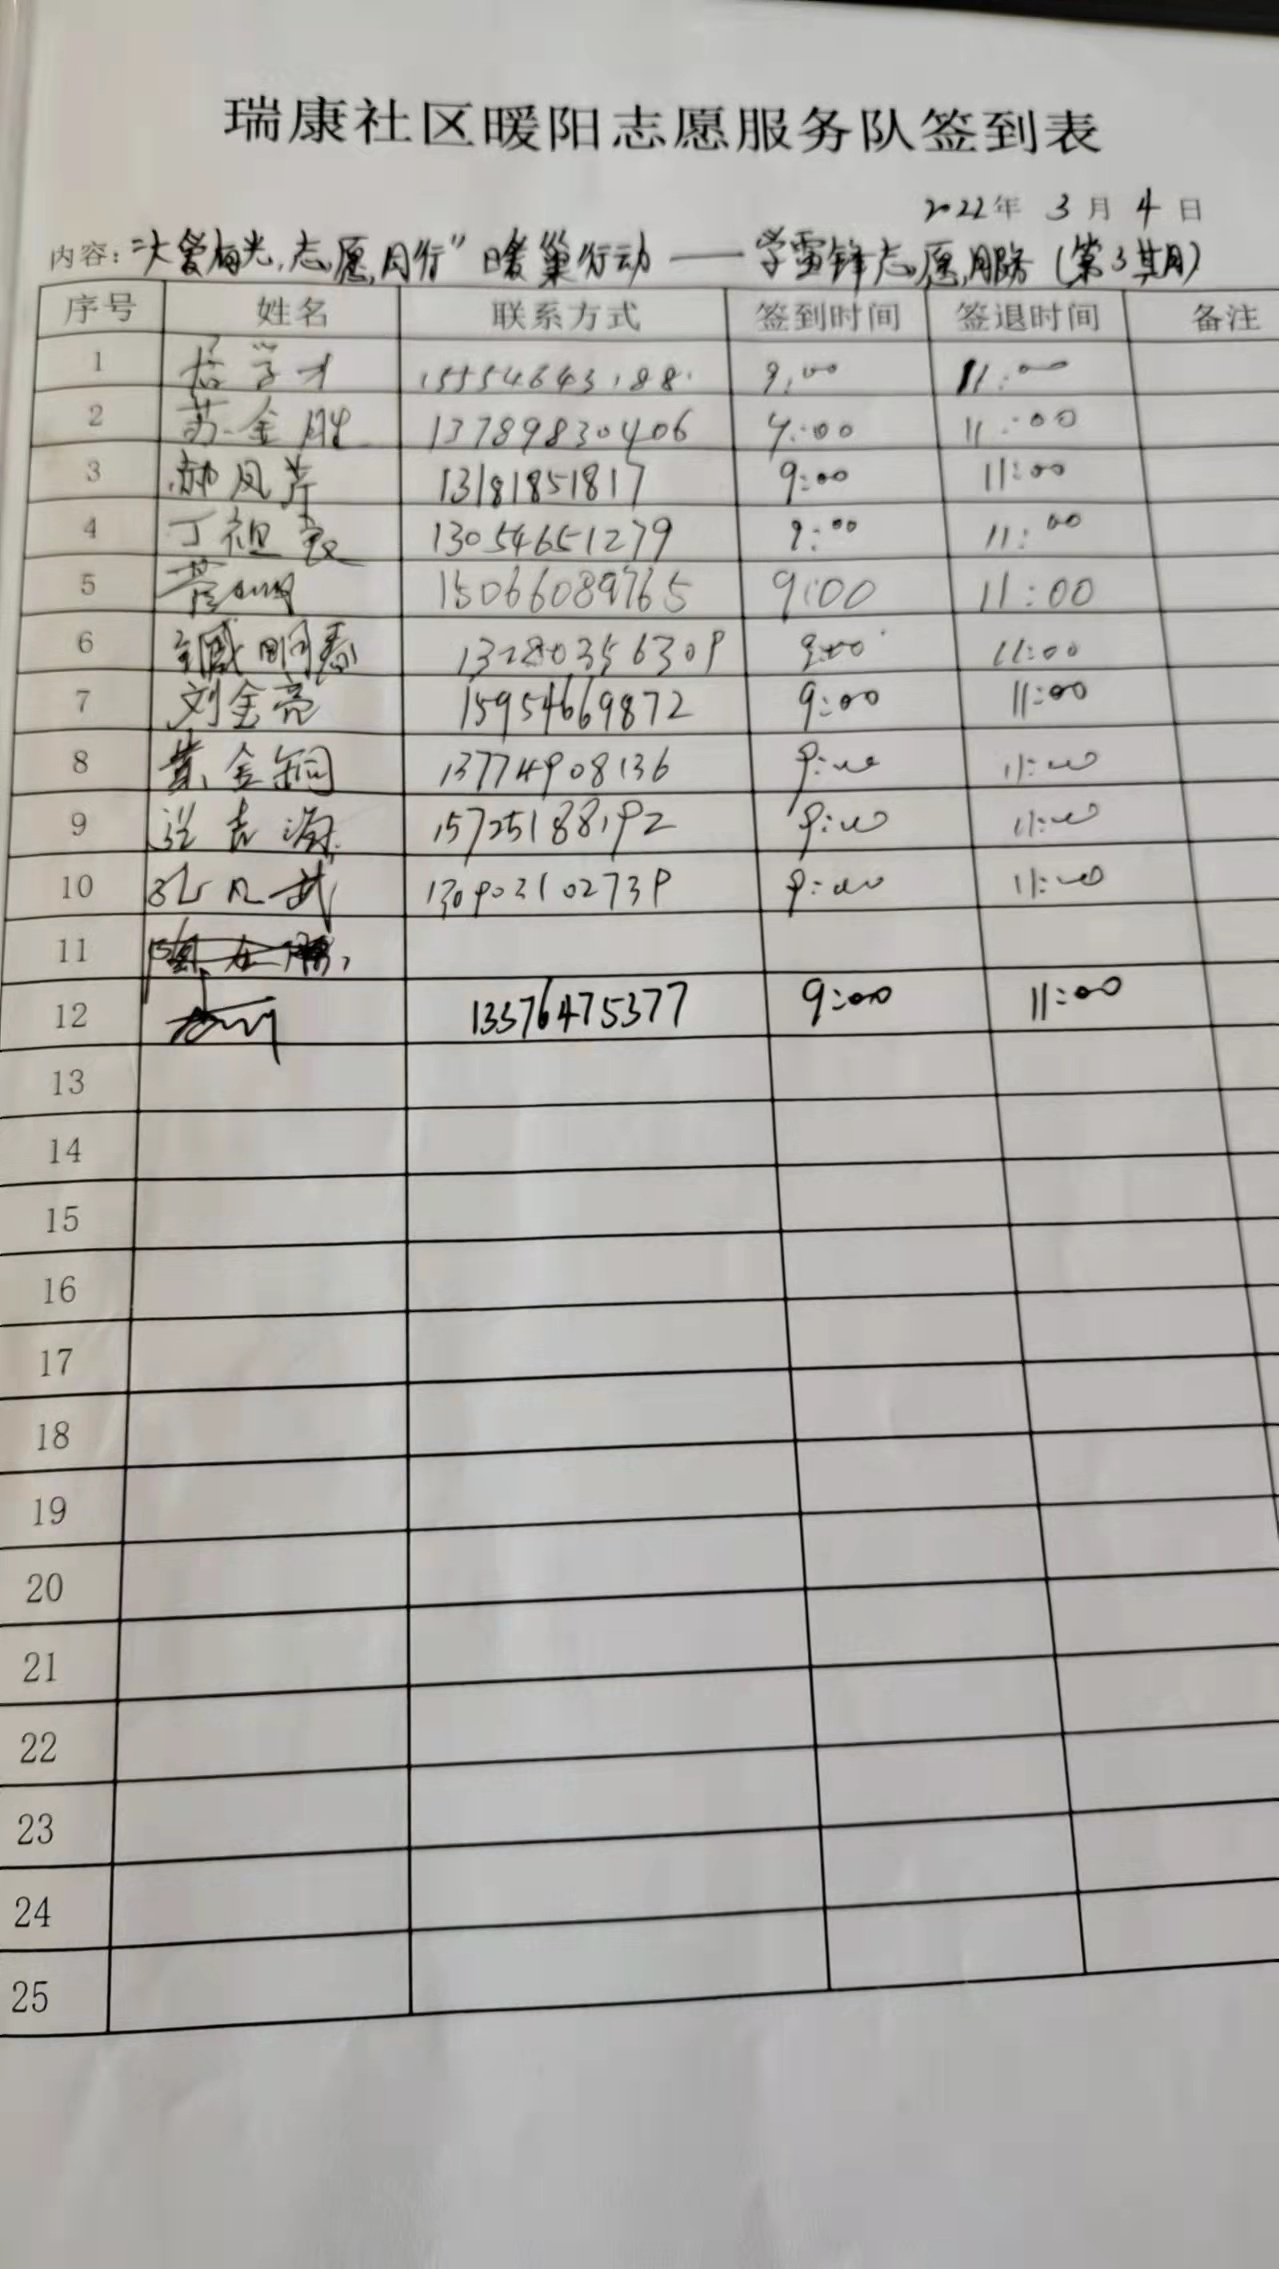 瑞康社区暖阳志愿服务队签到表
2022年 3月 4日
内容："大爱有光,志愿同行"暖巢行动——学雷锋志愿服务(第3期)
序号 姓名 联系方式 签到时间 签退时间 备注
1 15554643188 9:00 11:00
2 苏金胜 13789830406 9:00 11:00
3 郝凤芹 13181851817 9:00 11:00
4 丁祖 13054651279 9:00 11:00
5 15066089765 9:00 11:00
6 臧明春 13280356309 9:00 11:00
7 刘金亮 15954669872 9:00 11:00
8 黄金铜 13774908136 9:00 11:00
9 张吉源 15725188192 9:00 11:00
10 孔凡武 130903102739 9:00 11:00
11
12 13376475377 9:00 11:00
13
14
15
16
17
18
19
20
21
22
23
24
25